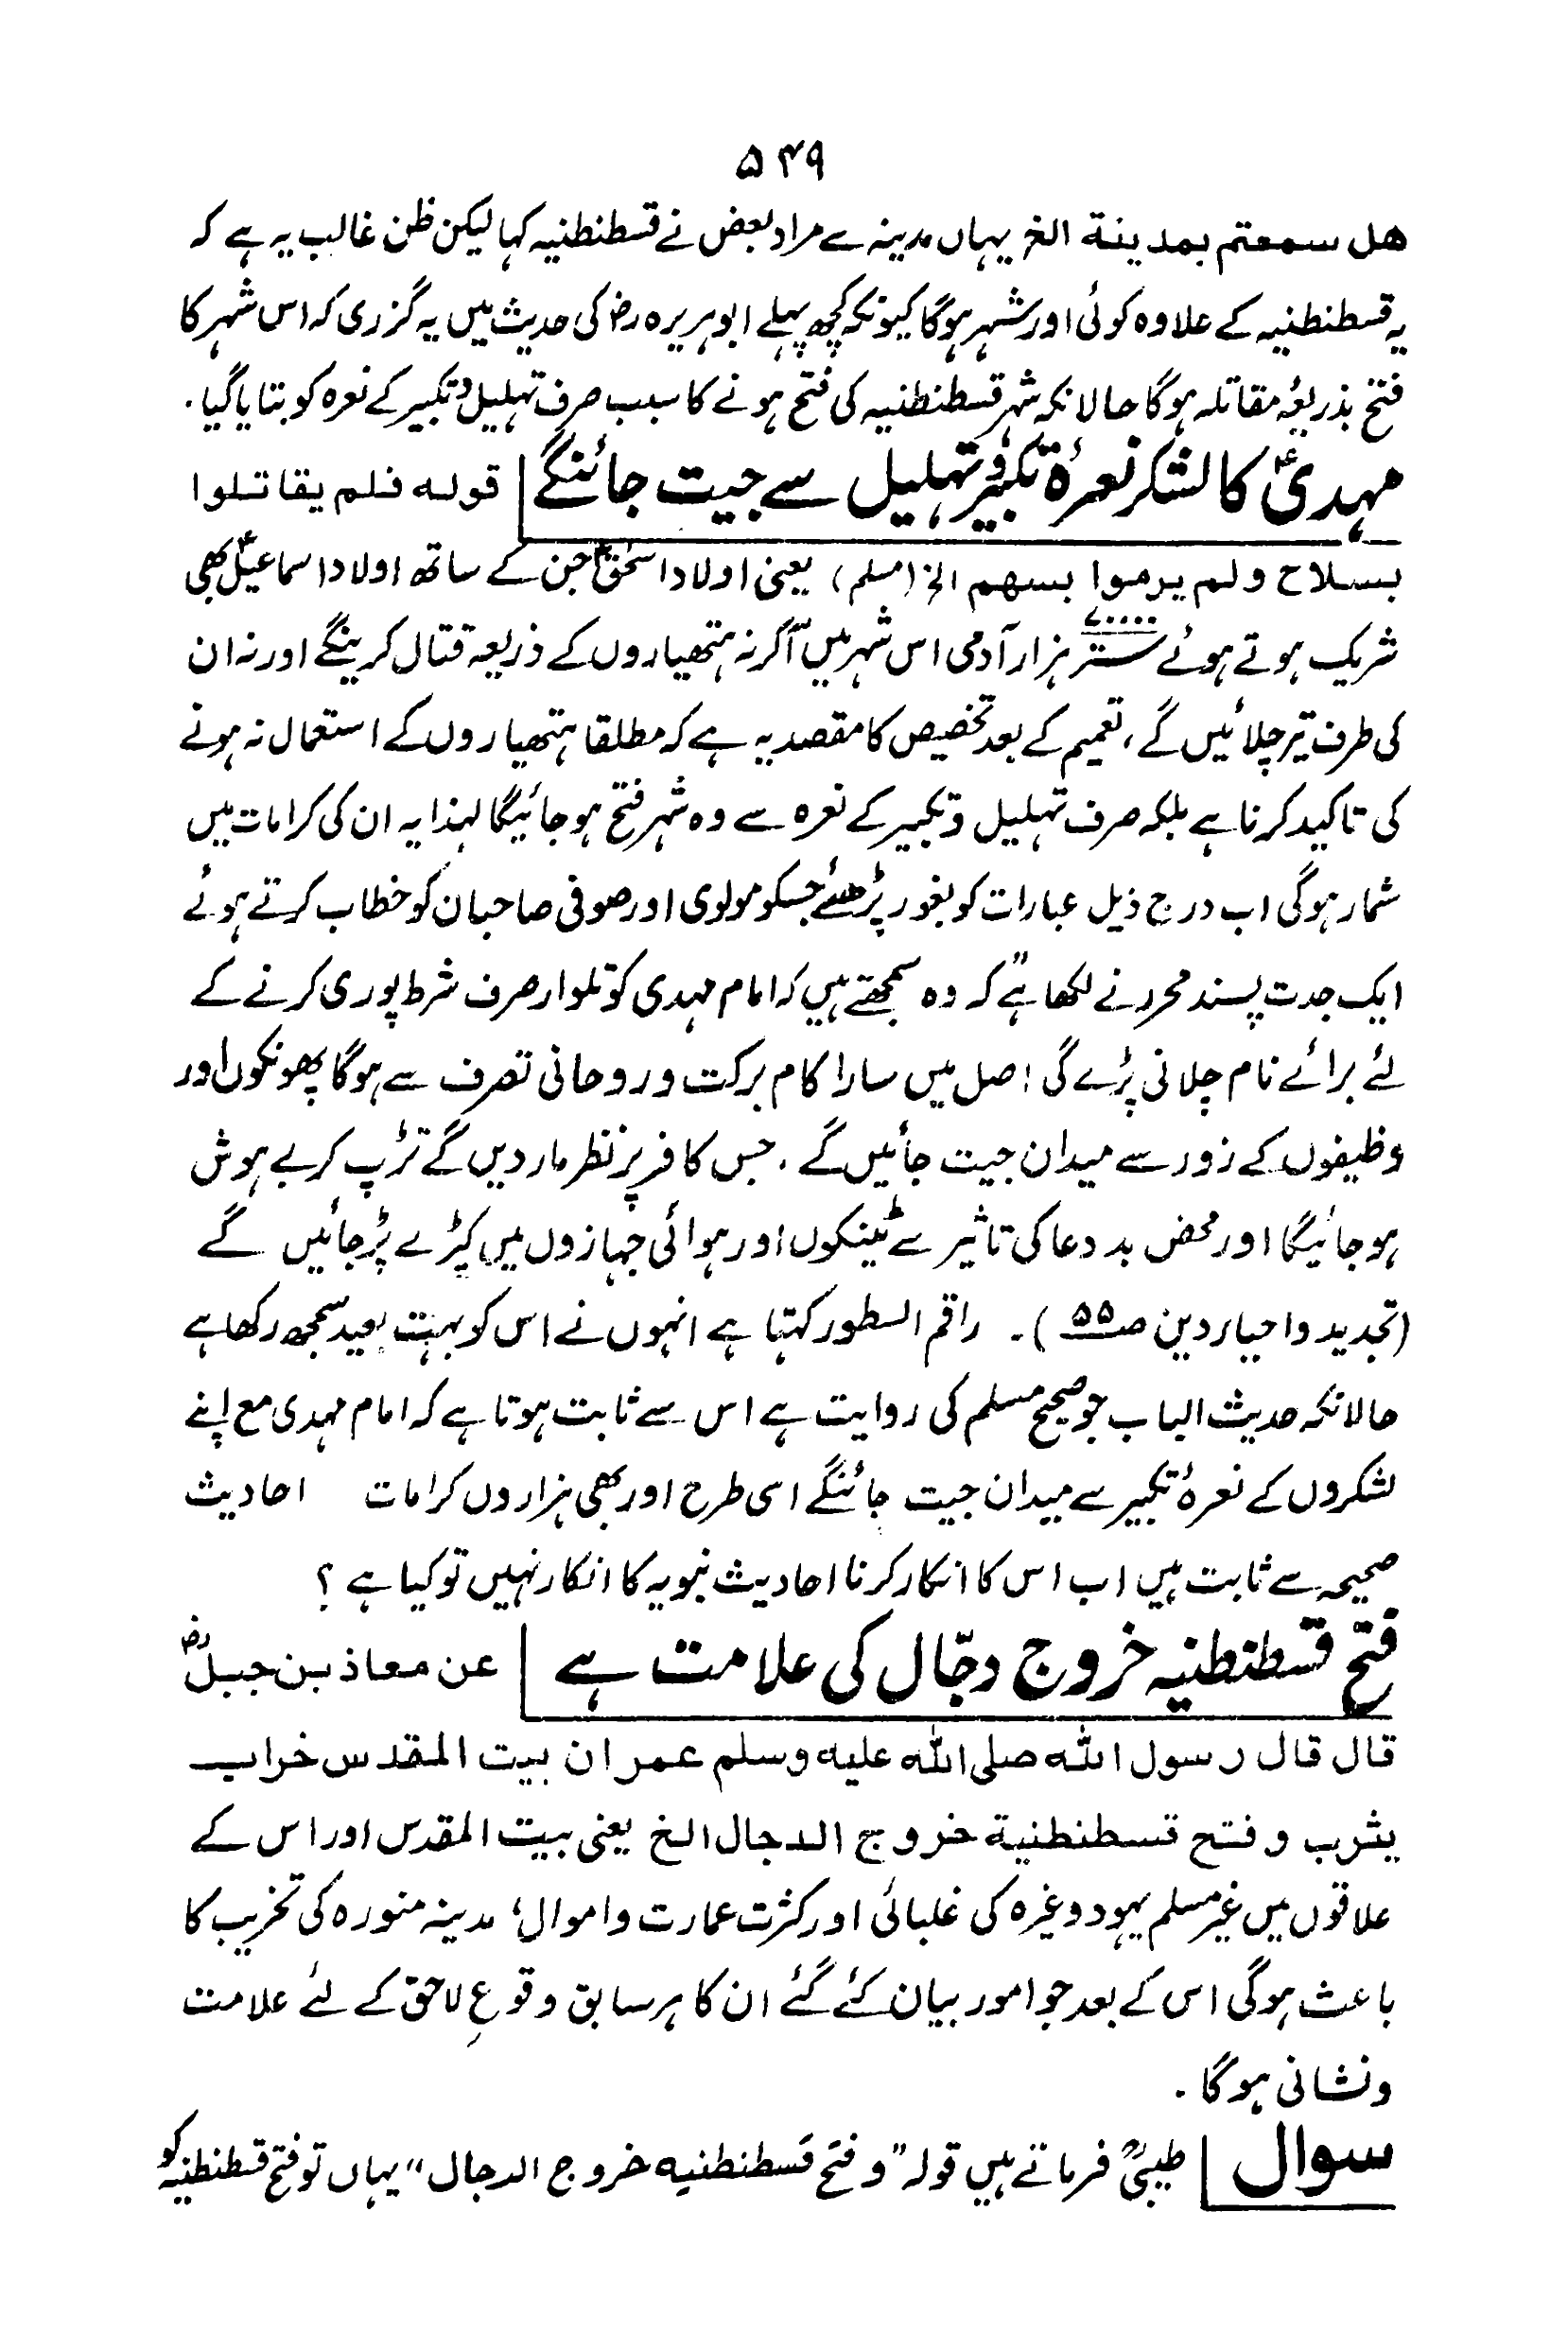 ۵۴۹
هل سمعتم بمدینة الخ یہاں مدینہ سے مراد بعض نے قسطنطنیہ کہا لیکن ظن غالب یہ ہے کہ
یہ قسطنطنیہ کے علاوہ کوئی اور شہر ہوگا کیونکہ کچھ پہلے ابوہریرہ رض کی حدیث میں یہ گزری کہ اس شہر کا
فتح بذریعۂ مقاتلہ ہوگا حالانکہ شہر قسطنطنیہ کی فتح ہونے کا سبب صرف تہلیل و تکبیر کے نعرہ کو بتایا گیا۔
مہدیؑ کا لشکر نعرۂ تکبیر و تہلیل سے جیت جائنگے | قوله فلم یقاتلوا
بسلاح ولم یرموا بسهم الخ (مسلم) یعنی اولاد اسحٰقؑ جن کے ساتھ اولاد اسماعیلؑ بھی
شریک ہوتے ہوئے ستر ۷۰۰۰۰ ہزار آدمی اس شہر میں آکر نہ ہتھیاروں کے ذریعہ قتال کرینگے اور نہ ان
کی طرف تیر چلائیں گے، تعمیم کے بعد تخصیص کا مقصد یہ ہے کہ مطلقا ہتھیاروں کے استعمال نہ ہونے
کی تاکید کرنا ہے بلکہ صرف تہلیل و تکبیر کے نعرہ سے وہ شہر فتح ہو جائیگا لہذا یہ ان کی کرامات میں
شمار ہوگی اب درج ذیل عبارات کو بغور پڑھئے جسکو مولوی اور صوفی صاحبان کو خطاب کرتے ہوئے
ایک جدت پسند محرر نے لکھا ہے "کہ وہ سمجھتے ہیں کہ امام مہدی کو تلوار صرف شرط پوری کرنے کے
لئے برائے نام چلانی پڑے گی اصل میں سارا کام برکت و روحانی تصرف سے ہوگا پھونکوں اور
وظیفوں کے زور سے میدان جیت جائیں گے ۔ جس کافر پر نظر مار دیں گے تڑپ کر بے ہوش
ہو جائیگا اور محض بد دعا کی تاثیر سے ٹینکوں اور ہوائی جہازوں میں کیڑے پڑ جائیں گے
(تجدید و احیاء دین صـ۵۵)۔ راقم السطور کہتا ہے انہوں نے اس کو بہت بعید سمجھ رکھا ہے
حالانکہ حدیث الباب جو صحیح مسلم کی روایت ہے اس سے ثابت ہوتا ہے کہ امام مہدی مع اپنے
لشکروں کے نعرۂ تکبیر سے میدان جیت جائنگے اسی طرح اور بھی ہزاروں کرامات احادیث
صحیحہ سے ثابت ہیں اب اس کا انکار کرنا احادیث نبویہ کا انکار نہیں تو کیا ہے ؟
فتح قسطنطنیہ خروج دجّال کی علامت ہے | عن معاذ بن جبلؓ
قال قال رسول الله صلی الله علیه وسلم عمران بیت المقدس خراب
یثرب و فتح قسطنطنیة خروج الدجال الخ یعنی بیت المقدس اور اس کے
علاقوں میں غیر مسلم یہود و غیرہ کی غلبائی اور کثرت عمارت و اموال، مدینہ منورہ کی تخریب کا
باعث ہوگی اس کے بعد جو امور بیان کئے گئے ان کا ہر سابق وقوعِ لاحق کے لئے علامت
و نشانی ہوگا ۔
سوال | طیبیؒ فرماتے ہیں قولہ "و فتح قسطنطنیه خروج الدجال" یہاں تو فتح قسطنطنیہ کو